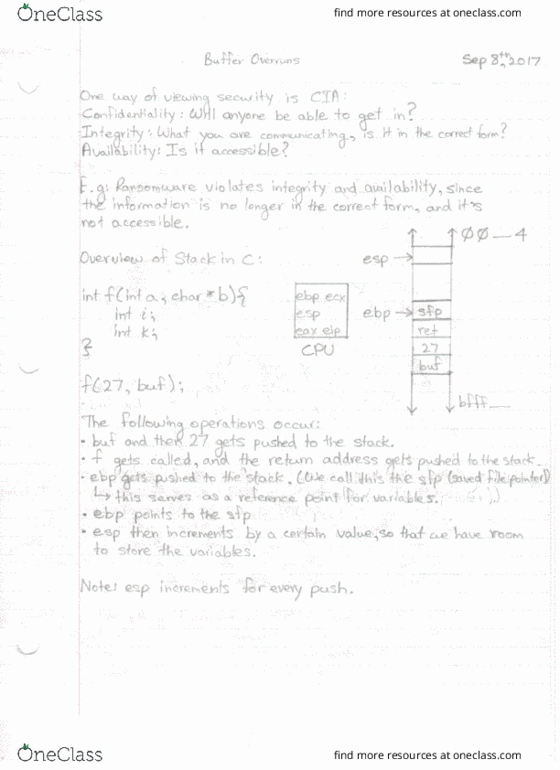 OneClass
find more resources at oneclass.com
Buffer Overruns
Sep 8th, 2017
One way of viewing security is CIA:
Confidentiality: Will anyone be able to get in?
Integrity: What you are communicating, is it in the correct form?
Availability: Is it accessible?
E.g: Ransomware violates integrity and availability, since
the information is no longer in the correct form, and it's
not accessible.
Overview of Stack in C:
int f(int a, char *b){
int i;
int k;
}
f(27, buf);
ebp ecx
esp
eax eip
CPU
ØØ—4
esp →
ebp → sfp
ret
27
buf
bfff
The following operations occur:
• buf and then 27 gets pushed to the stack.
• f gets called, and the return address gets pushed to the stack.
• ebp gets pushed to the stack. (We call this the sfp (saved file pointer)
↳ this serves as a reference point for variables.
• ebp points to the sfp.
• esp then increments by a certain value, so that we have room
to store the variables.
Note: esp increments for every push.
OneClass
find more resources at oneclass.com